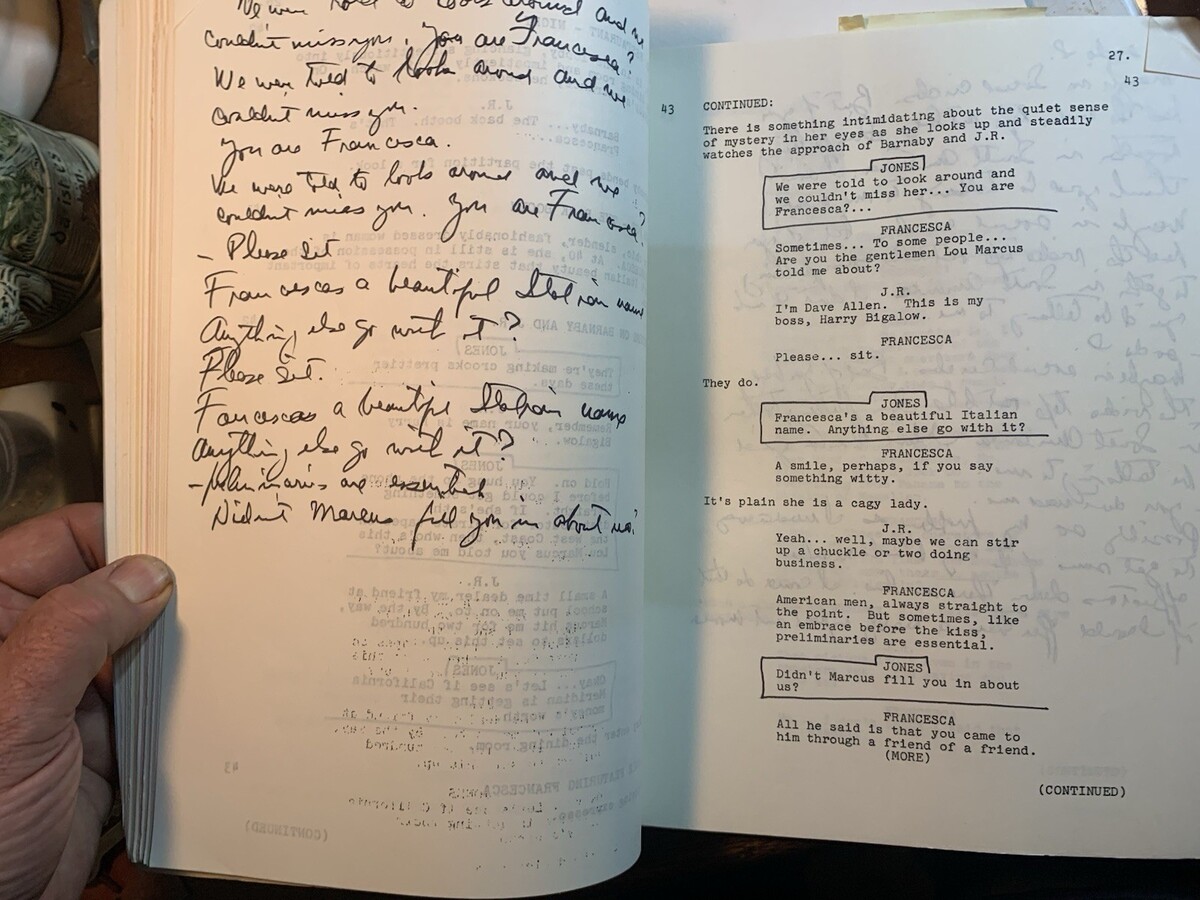 We were told to look around and we
couldn't miss you. You are Francesca?
We were told to look around and we
couldn't miss you.
you are Francesca.
We were told to look around and we
couldn't miss you. You are Francesca?
- Please Sit
Francescas a beautiful Italian name
Anything else go with it?
Please Sit.
Francescas a beautiful Italian name
Anything else go with it?
- preliminaries are essential
Didn't Marcus fill you in about us?
27.
43
43
CONTINUED:
There is something intimidating about the quiet sense
of mystery in her eyes as she looks up and steadily
watches the approach of Barnaby and J.R.
JONES
We were told to look around and
we couldn't miss her... You are
Francesca?...
FRANCESCA
Sometimes... To some people...
Are you the gentlemen Lou Marcus
told me about?
J.R.
I'm Dave Allen. This is my
boss, Harry Bigalow.
FRANCESCA
Please... sit.
They do.
JONES
Francesca's a beautiful Italian
name. Anything else go with it?
FRANCESCA
A smile, perhaps, if you say
something witty.
It's plain she is a cagy lady.
J.R.
Yeah... well, maybe we can stir
up a chuckle or two doing
business.
FRANCESCA
American men, always straight to
the point. But sometimes, like
an embrace before the kiss,
preliminaries are essential.
JONES
Didn't Marcus fill you in about
us?
FRANCESCA
All he said is that you came to
him through a friend of a friend.
(MORE)
(CONTINUED)